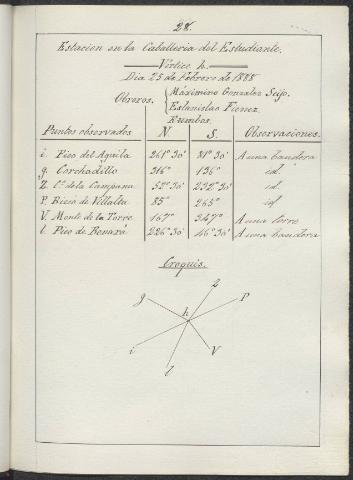 28.
Estacion en la Caballeria del Estudiante.
Vértice h.
Dia 25 de Febrero de 1888
Obreros. Máximino Gonzalez Seijo.
Estanislao
Rumbos.
Puntos observados N. S. Observaciones.
i. Pico del Aguila 261° 30' 81° 30' A una bandera
g. Corchadillo 316° 136° id.
Z. C.º de la Campana 52° 30' 232° 30' id.
P. Bicio de Villalta 85° 265° id
V. Monte de la Torre 167° 347° A una torre
l. Pico de Benazá 226° 30' 46° 30' A una bandera
Croquis.
Z
g P
h
i V
l